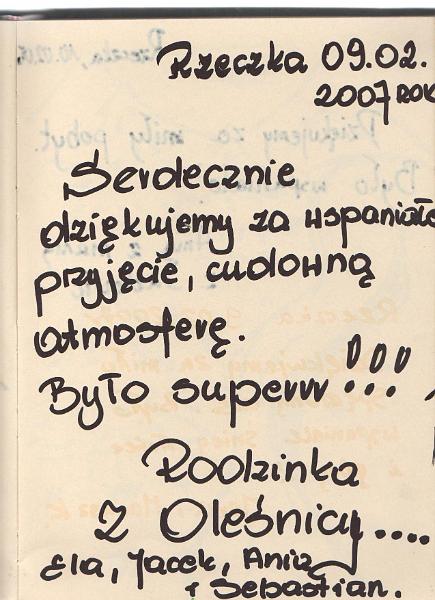 Rzeczka 09.02.
2007 ROK
Serdecznie
dziękujemy za wspaniałe
przyjęcie, cudowną
atmosferę.
Było superrr!!!
Rodzinka
z Oleśnicy....
Ela, Jacek, Ania
i Sebastian.